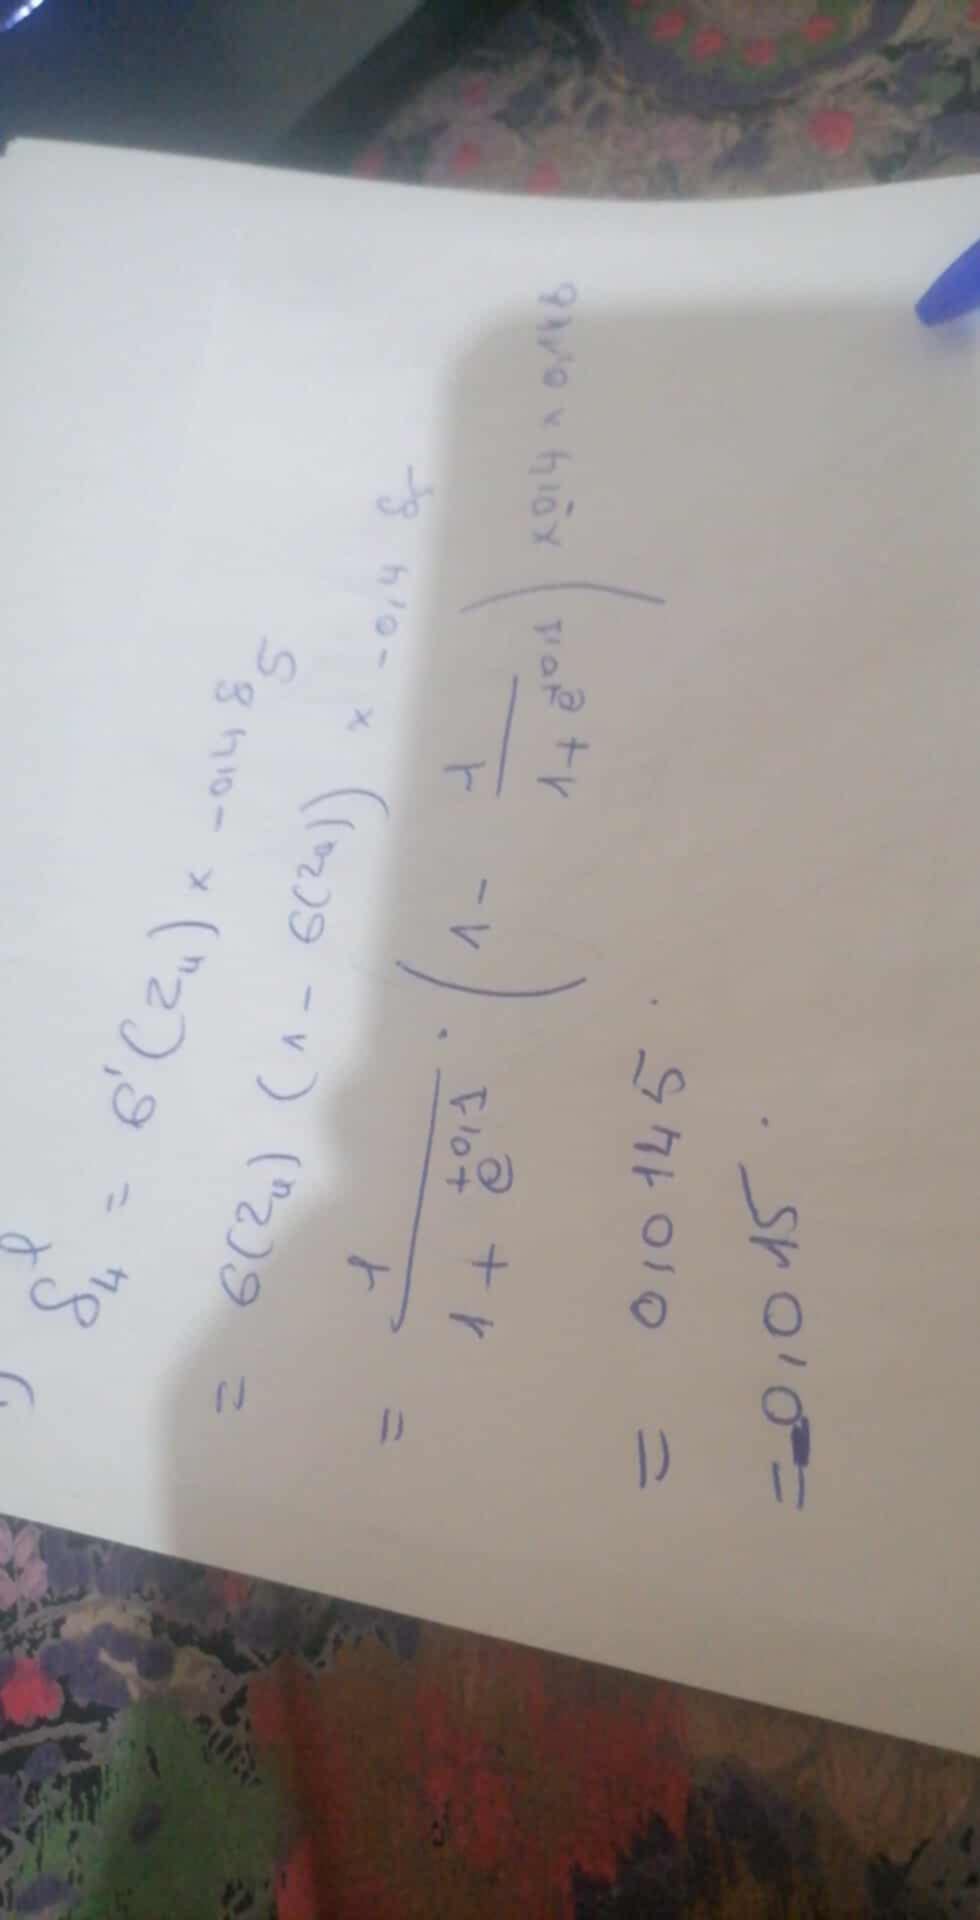 δ₄ˡ = σ'(z₄) × -0,4 δ₅
= σ(z₄) (1 - σ(z₄)) × -0,4 δ₅
= 1/(1 + e^{+0,1}) · (1 - 1/(1 + e^{+0,1})) × -0,4 × 0,148
= 0,0145.
= -0,015.